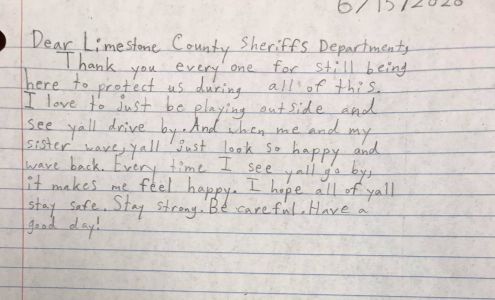 6/15/2020
Dear Limestone County Sheriffs Department,
Thank you every one for still being
here to protect us during all of this.
I love to just be playing outside and
see yall drive by. And when me and my
sister wave, yall just look so happy and
wave back. Every time I see yall go by,
it makes me feel happy. I hope all of yall
stay safe. Stay strong. Be careful. Have a
good day!